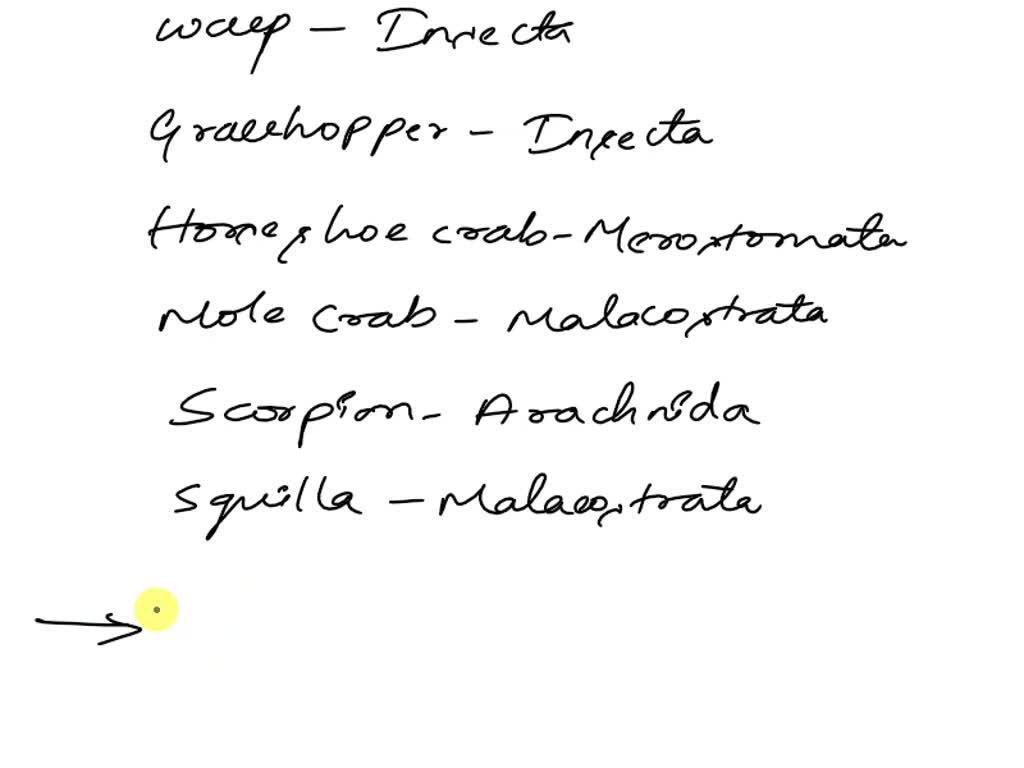 wasp - Insecta
Grasshopper - Insecta
Horseshoe crab - Merostomata
Mole crab - Malacostrata
Scorpion - Arachnida
Squilla - Malacostrata